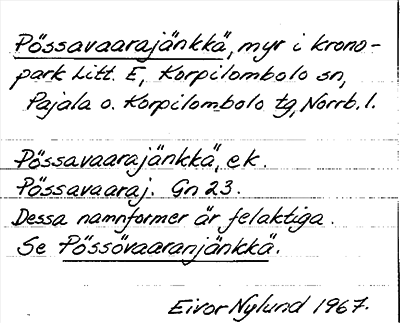 Pössavaarajänkkä, myr i krono-
park Litt. E, Korpilombolo sn,
Pajala o. Korpilombolo tg, Norrb. l.
Pössavaarajänkkä, ek.
Pössavaaraj. Gn 23.
Dessa namnformer är felaktiga.
Se Pössövaaranjänkkä.
Eivor Nylund 1967.